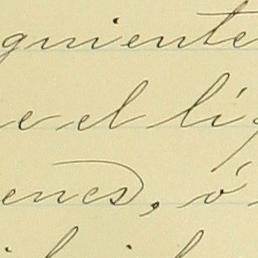 guiente
e el lig
enes, ó